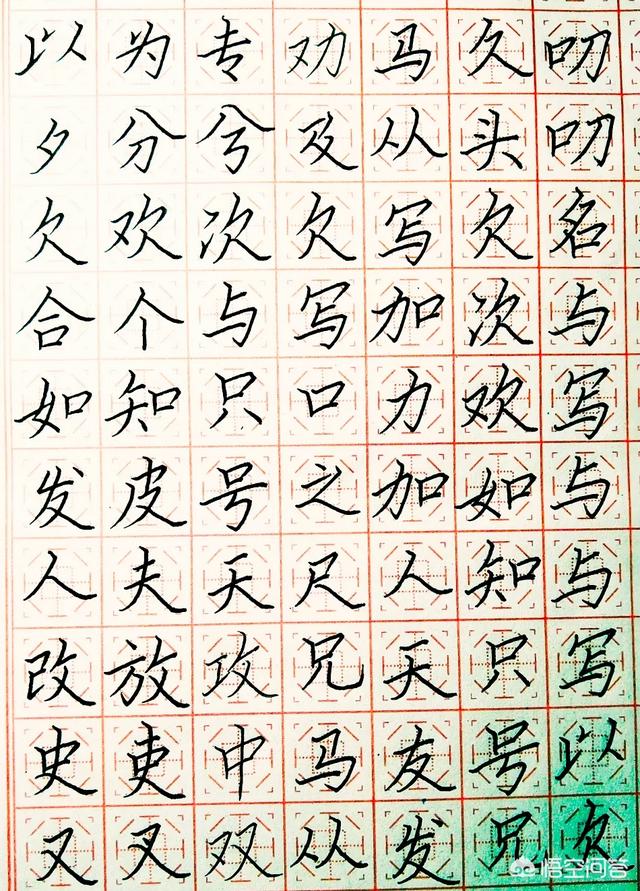 以为专劝马久叨
夕分兮及从头叨
欠欢次欠写欠名
合个与写加次与
如知只口力欢写
发皮号之加如与
人夫天尺人知与
改放攻兄天只写
史吏中马友号以
又又双从发兄欠
悟空问答